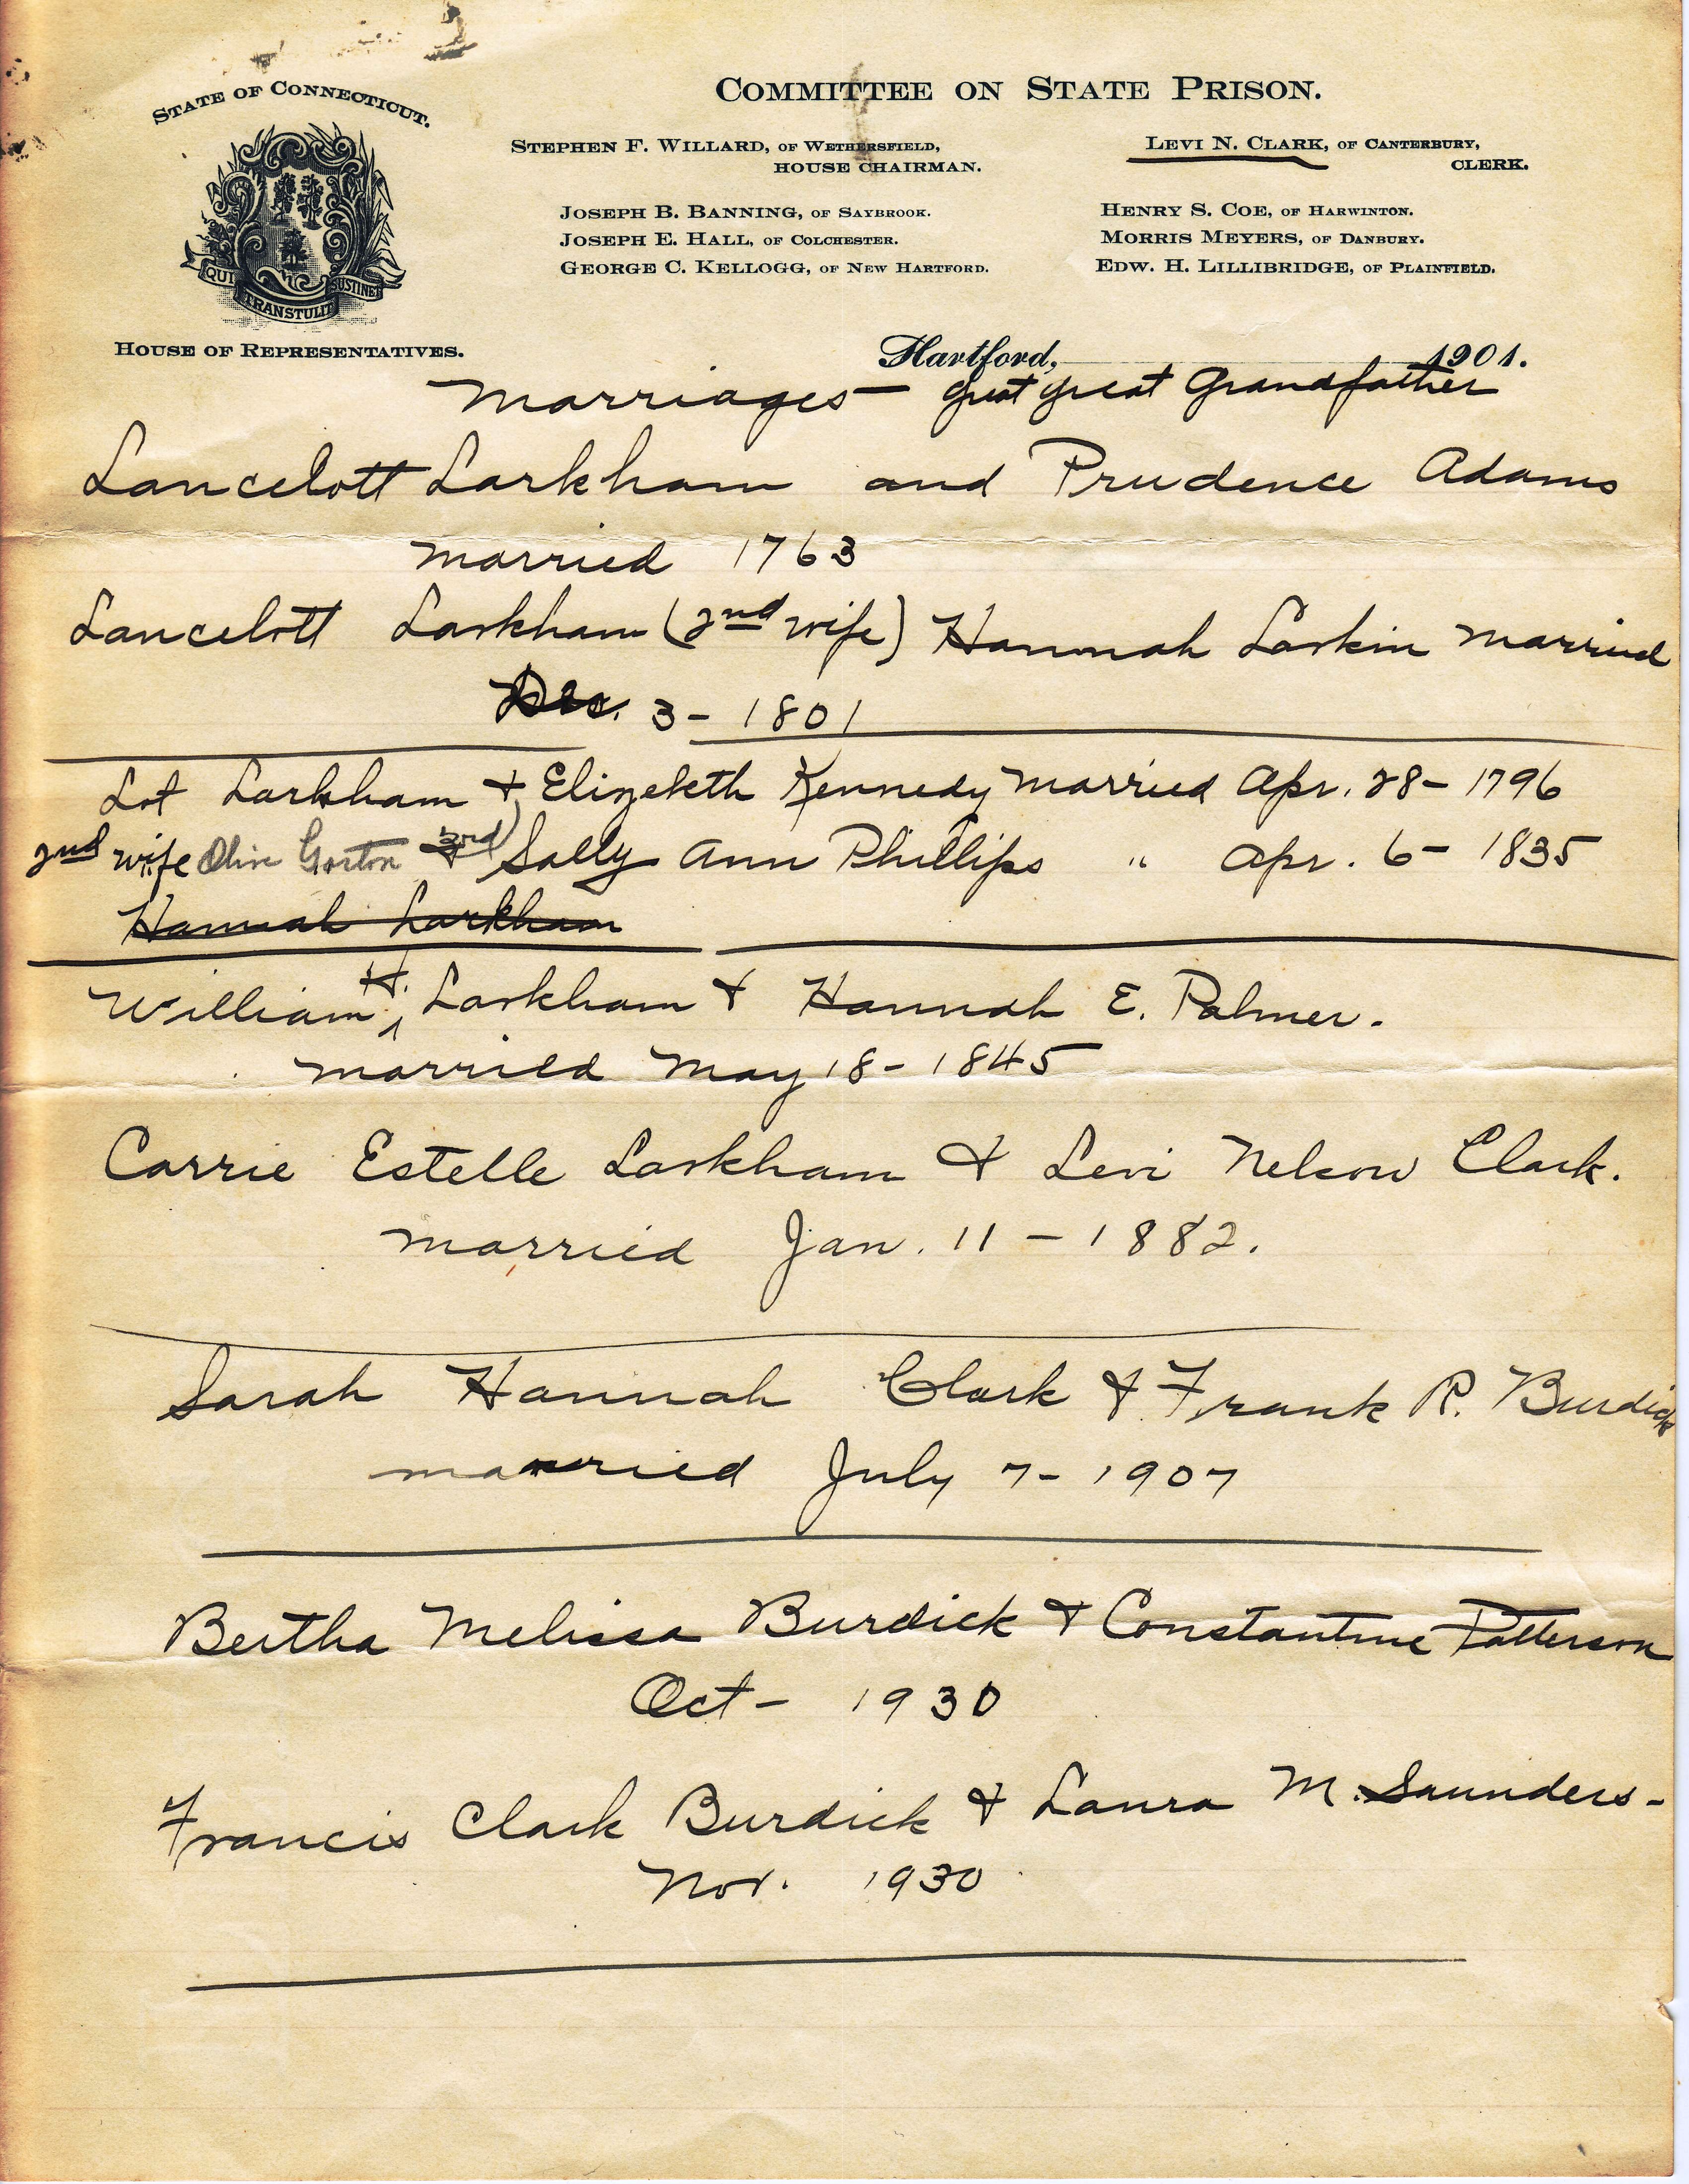 STATE OF CONNECTICUT.
QUI TRANSTULIT SUSTINET
HOUSE OF REPRESENTATIVES.
COMMITTEE ON STATE PRISON.
STEPHEN F. WILLARD, OF WETHERSFIELD,
HOUSE CHAIRMAN.
LEVI N. CLARK, OF CANTERBURY,
CLERK.
JOSEPH B. BANNING, OF SAYBROOK.
JOSEPH E. HALL, OF COLCHESTER.
GEORGE C. KELLOGG, OF NEW HARTFORD.
HENRY S. COE, OF HARWINTON.
MORRIS MEYERS, OF DANBURY.
EDW. H. LILLIBRIDGE, OF PLAINFIELD.
Hartford, 1901.
Marriages — great great Grandfather
Lancelott Larkham and Prudence Adams
married 1763
Lancelott Larkham (2nd wife) Hannah Larkin married
Dec. 3 - 1801
Lot Larkham + Elizebeth Kennedy married Apr. 28 - 1796
2nd wife Olive Gorton 3rd) Sally Ann Phillips " Apr. 6 - 1835
Hannah Larkham
William H. Larkham + Hannah E. Palmer.
married May 18 - 1845
Carrie Estelle Larkham & Levi Nelson Clark.
married Jan. 11 - 1882.
Sarah Hannah Clark & Frank R. Burdick
married July 7 - 1907
Bertha Melissa Burdick + Constantine Patterson
Oct - 1930
Francis Clark Burdick & Laura M. Saunders -
Nov. 1930